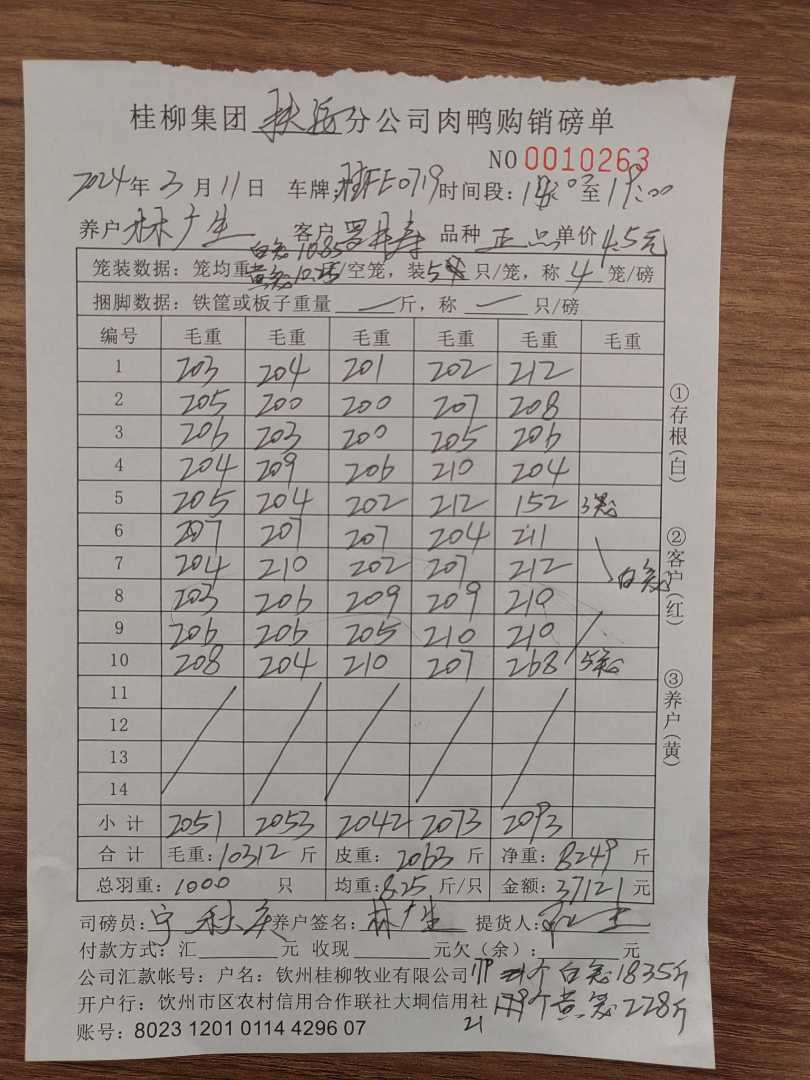 桂柳集团扶绥分公司肉鸭购销磅单
NO 0010263
2024年3月11日 车牌:桂FE0719时间段:至19:00
养户林广生 客户 品种 正品单价4.5元
白笼10.85
笼装数据:笼均重黄笼/空笼,装5只/笼,称4笼/磅
捆脚数据:铁筐或板子重量 一 斤,称 一 只/磅
编号 毛重 毛重 毛重 毛重 毛重 毛重
1 203 204 201 202 212
2 205 200 200 207 208
3 206 203 200 205 206
4 204 209 206 210 204
5 205 204 202 212 152 3笼
6 207 207 207 204 211
7 204 210 202 207 212 白笼
8 203 206 209 209 210
9 206 206 205 210 210
10 208 204 210 207 268 5笼
11
12
13
14
小计 2051 2053 2042 2073 2093
合计 毛重:10312斤 皮重:2063斤 净重:8249斤
总羽重:1000只 均重:8.25斤/只 金额:37121元
司磅员:宁秋 养户签名:林广生 提货人:
付款方式:汇 元 收现 元欠(余): 元
公司汇款帐号:户名:钦州桂柳牧业有限公司 179个白笼1835斤
开户行:钦州市区农村信用合作联社大垌信用社 个黄笼228斤
21
账号:8023 1201 0114 4296 07
①存根(白)
②客户(红)
③养户(黄)